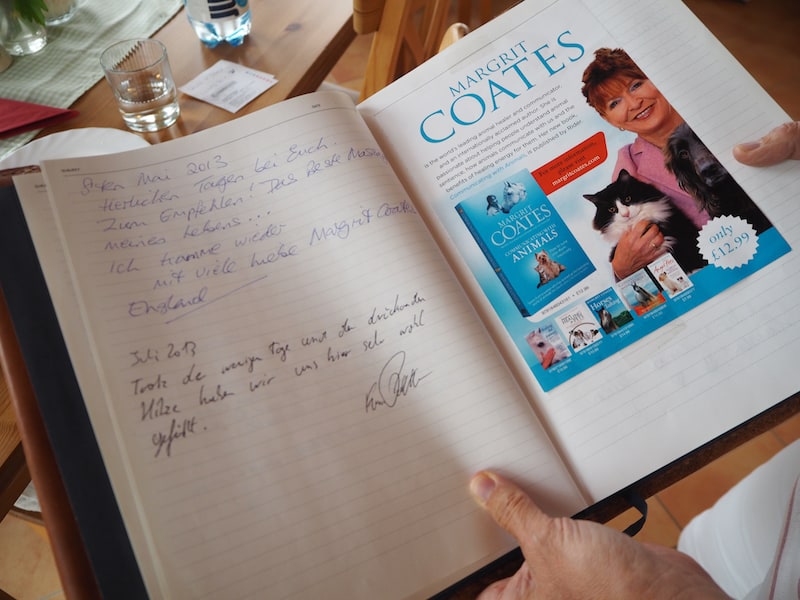 SUBJECT
DATE
Mai 2013
Herlichen Tagen bei Euch.
Zum Empfehlen! Das Beste
meines Lebens...
Ich komme wieder
mit viele liebe Margrit Coates
England
Juli 2013
Trotz der wenigen Tage und der drückenden
Hitze haben wir uns hier sehr wohl
gefühlt.
MARGRIT
COATES
is the world's leading animal healer and communicator,
and an internationally acclaimed author. She is
passionate about helping people understand animal
sentience, how animals communicate with us and the
benefits of healing energy for them. Her new book,
Communicating with Animals, is published by Rider.
margritcoates.com
MARGRIT
COATES
COMMUNICATING WITH
ANIMALS
only
£12.99